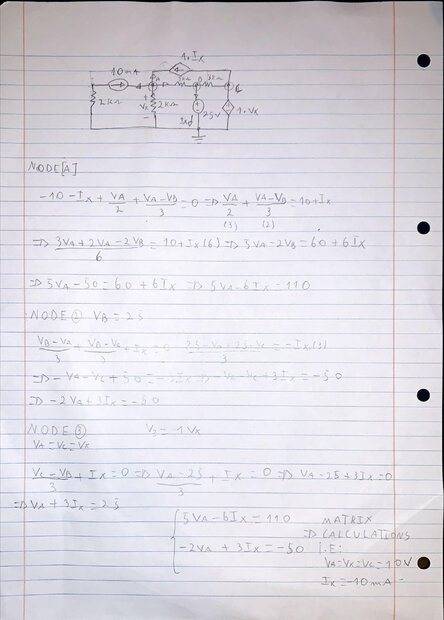 1·Ix
10mA
A
B
C
3kΩ
3kΩ
2kΩ
+
Vx
-
2kΩ
Ix
25V
1·Vx
NODE[A]
-10-Ix+VA/2+(VA-VB)/3=0 => VA/2 (3) + (VA-VB)/3 (2) =10+Ix
=> (3VA+2VA-2VB)/6=10+Ix(6) => 5VA-2VB=60+6Ix
=> 5VA-50=60+6Ix => 5VA-6Ix=110
NODE ② VB=25
(VB-VA)/3+(VB-VC)/3+Ix=0 (25-VA+25-VC)/3=-Ix(3)
=> -VA-VC+50=-3Ix => -VA-VC+3Ix=-50
=> -2VA+3Ix=-50
NODE ③ V3=1Vx
VA=VC=Vx
(VC-VB)/3+Ix=0 => (VA-25)/3+Ix=0 => VA-25+3Ix=0
=> VA+3Ix=25
5VA-6Ix=110 MATRIX
=> CALCULATIONS
-2VA+3Ix=-50 I.E:
VA=Vx=VC=10V
Ix=-10mA